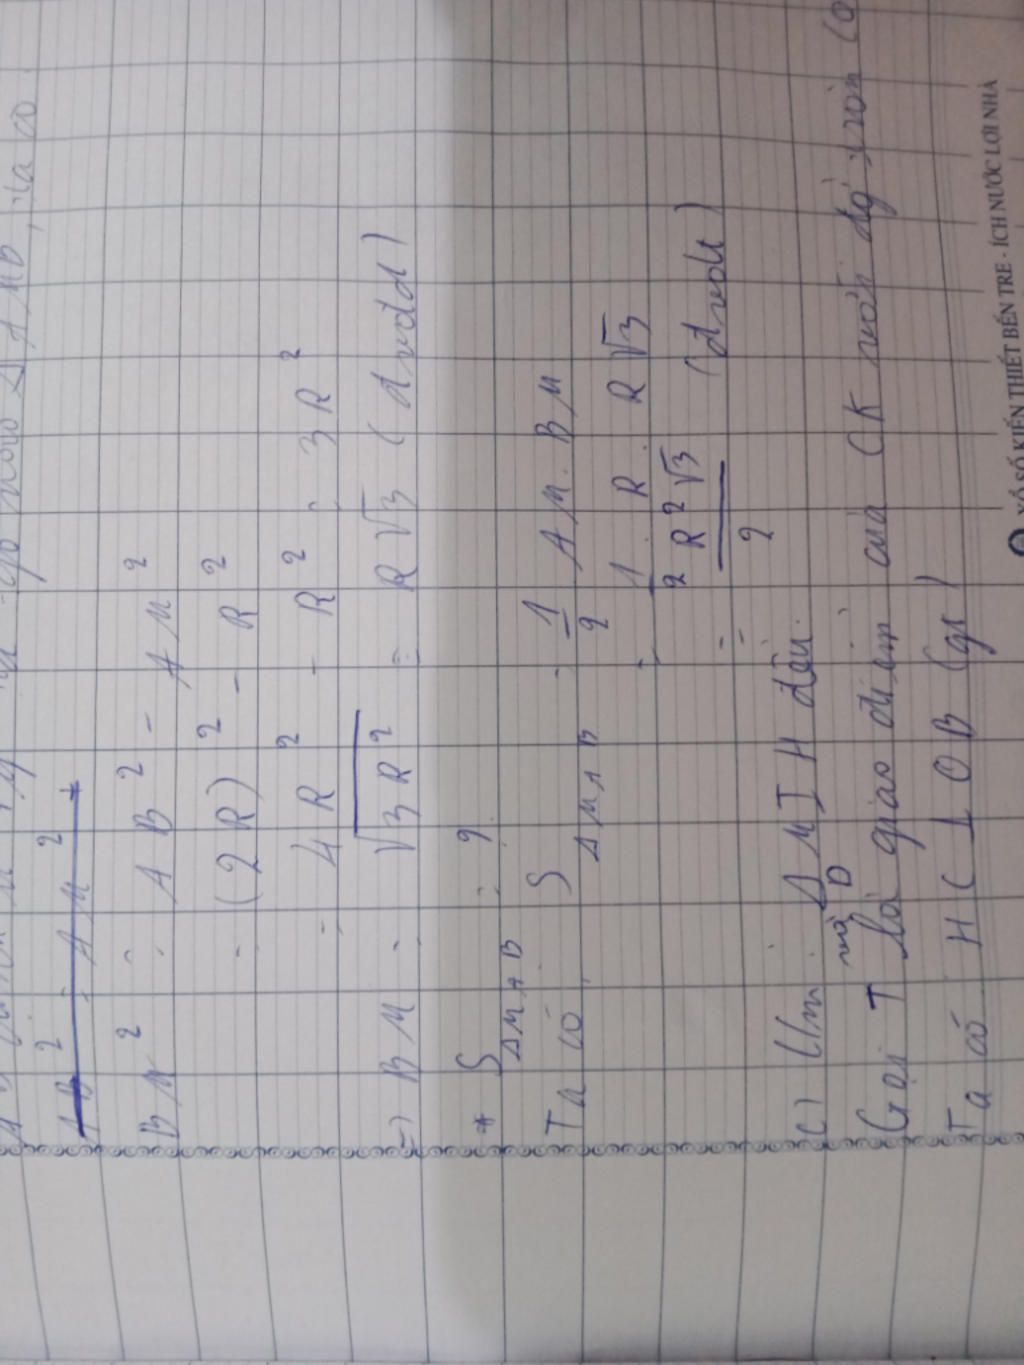 vuông AMB, ta có
AB² = AM² +
BM² = AB² - AM²
= (2R)² - R²
= 4R² - R² = 3R²
=> BM = √3R² = R√3 (đvđd)
* S ΔMAB = ?
Ta có S ΔMAB = 1/2 AM . BM
= 1/2 . R . R√3
= R²√3/2 (đvdt)
c) Cm : ΔMIH đều.
Gọi T và D là giao điểm của CK với đg tròn (O
Ta có HC ⊥ OB (gt)
XỔ SỐ KIẾN THIẾT BẾN TRE - ÍCH NƯỚC LỢI NHÀ